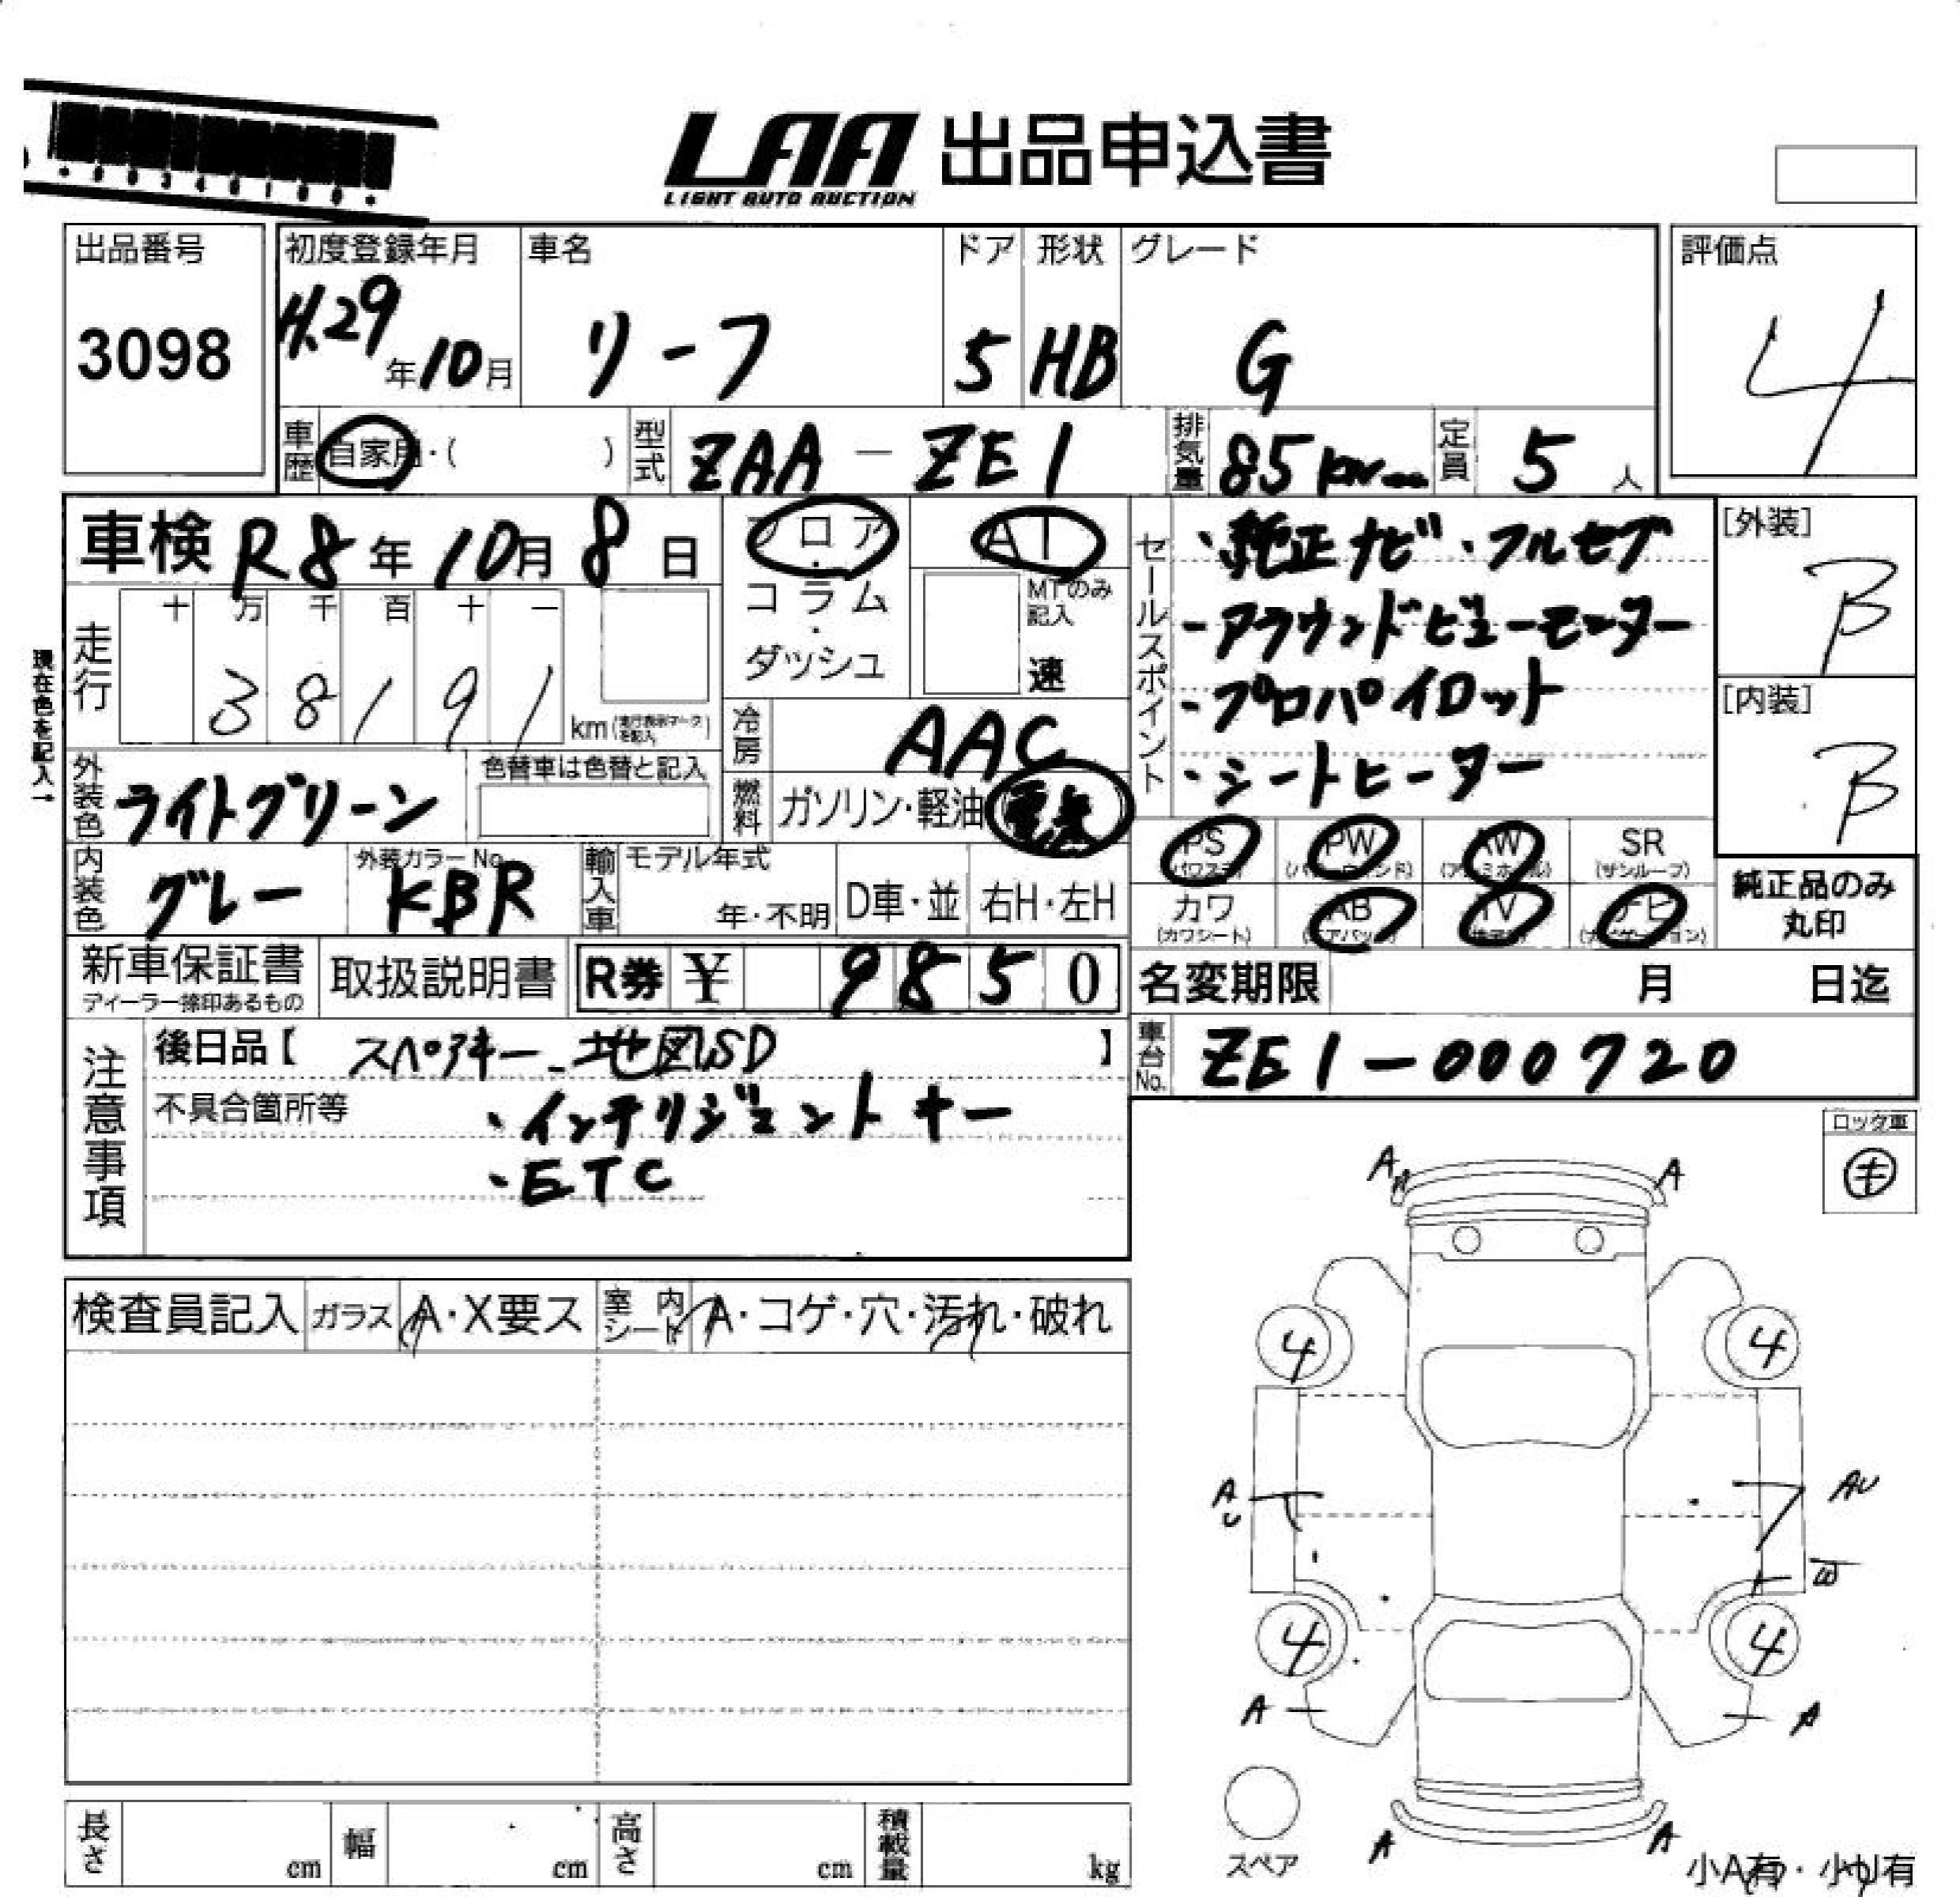 LAA 出品申込書
LIGHT AUTO AUCTION
出品番号
3098
初度登録年月
H.29年10月
車名
リーフ
ドア
5
形状
HB
グレード
G
評価点
4
車歴
自家用・( )
型式
ZAA-ZE1
排気量
85kw
定員
5人
車検 R8年10月8日
フロア
・
コラム
・
ダッシュ
AT
MTのみ
記入
速
セールスポイント
・純正ナビ・フルセグ
-アラウンドビューモニター
-プロパイロット
・シートヒーター
[外装]
B
[内装]
B
現在色を記入→
走行
十 万 千 百 十 一
3 8 1 9 1
km(走行表示マークを記入)
冷房
AAC
燃料
ガソリン・軽油
外装色
ライトグリーン
色替車は色替と記入
内装色
グレー
外装カラーNo.
KBR
輸入車
モデル年式
年・不明
D車・並
右H・左H
PS
(パワステ)
PW
(パワーウィンド)
AW
(アルミホイル)
SR
(サンルーフ)
カワ
(カワシート)
AB
(エアバック)
TV
ナビ
(ナビゲーション)
純正品のみ
丸印
新車保証書
ディーラー捺印あるもの
取扱説明書
R券 ¥ 9 8 5 0
名変期限 月 日迄
車台No.
ZE1-000720
注意事項
後日品【 スペアキー 地図SD 】
不具合箇所等
・インテリジェントキー
・ETC
ロック車
キ
検査員記入
ガラス
A・X要ス
室内
シート
A・コゲ・穴・汚れ・破れ
A
A
4
4
A
U
AU
W
4
4
A
A
A
A
スペア
小A有・小U有
長さ
cm
幅
cm
高さ
cm
積載量
kg